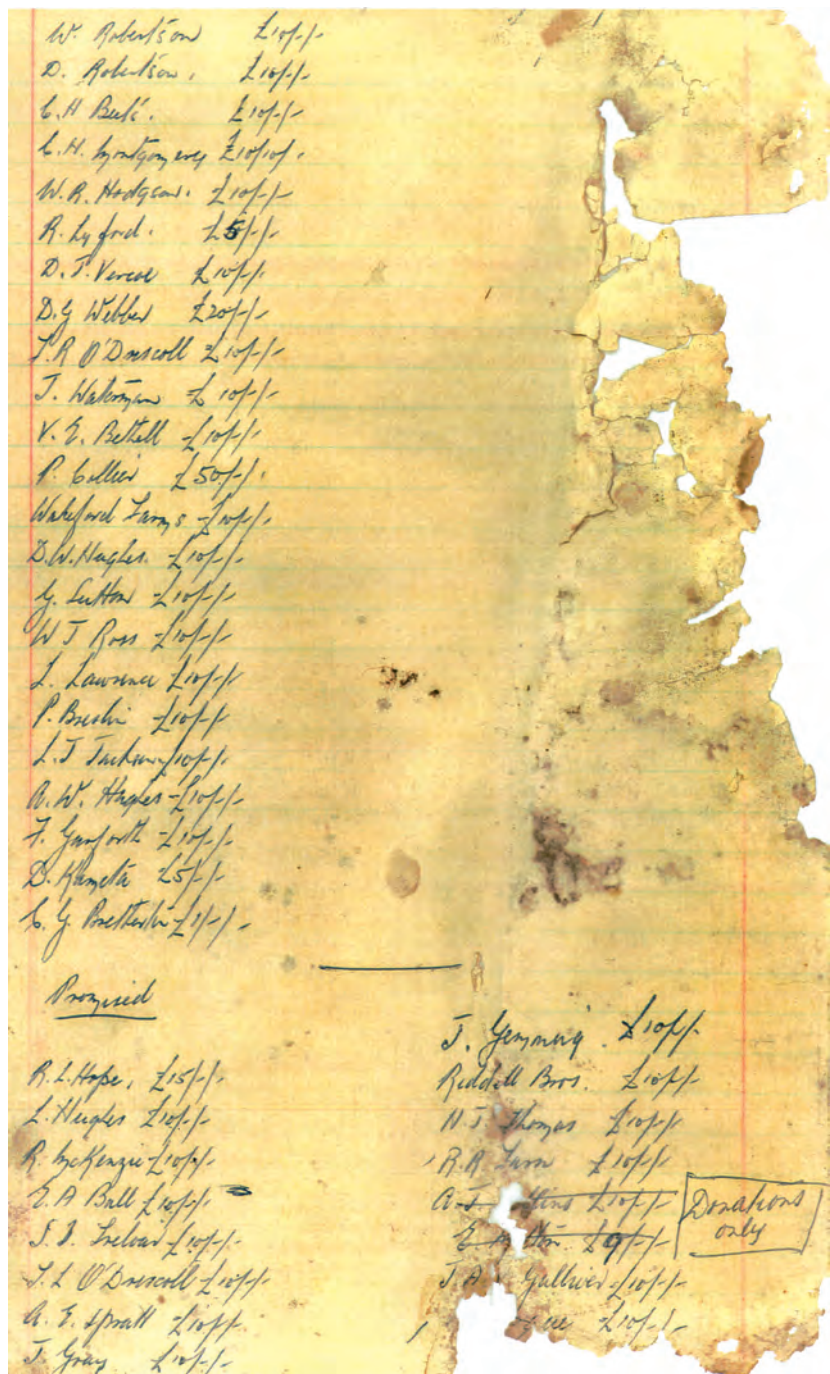 W. Robertson £10/-/-
D. Robertson. £10/-/-
C.H. £10/-/-
C.H. Montgomery £10/10/-
W.R. Hodgson. £10/-/-
R. Lyford. £5/-/-
D.J. Vercoe £10/-/-
D.G Webber £20/-/-
J.R O'Driscoll £10/-/-
J. Waterman £10/-/-
V.E. Bettell £10/-/-
P. Collier £50/-/-
Wakeford Farms £10/-/-
D.W. Hughes. £10/-/-
G. Sutton £10/-/-
W J Ross £10/-/-
L. Lawrence £10/-/-
P. Breslin £10/-/-
L.J Jackson £10/-/-
A.W. Hughes £10/-/-
F. Garforth £10/-/-
D. Kameta £5/-/-
C.G. £1/-/-
Promised
R.L. Hope. £15/-/-
L. Hughes £10/-/-
R. McKenzie £10/-/-
E.A Ball £10/-/-
J.B. Treloar £10/-/-
J.L O'Driscoll £10/-/-
A.E. Spratt £10/-/-
J. Gray £10/-/-
J. £10/-/-
Riddell Bros. £10/-/-
N.J Thomas £10/-/-
R.R Farn £10/-/-
A.J. £10/-/-
E. £9/-/-
J.A Gulliver £10/-/-
£10/-/-
Donations
only